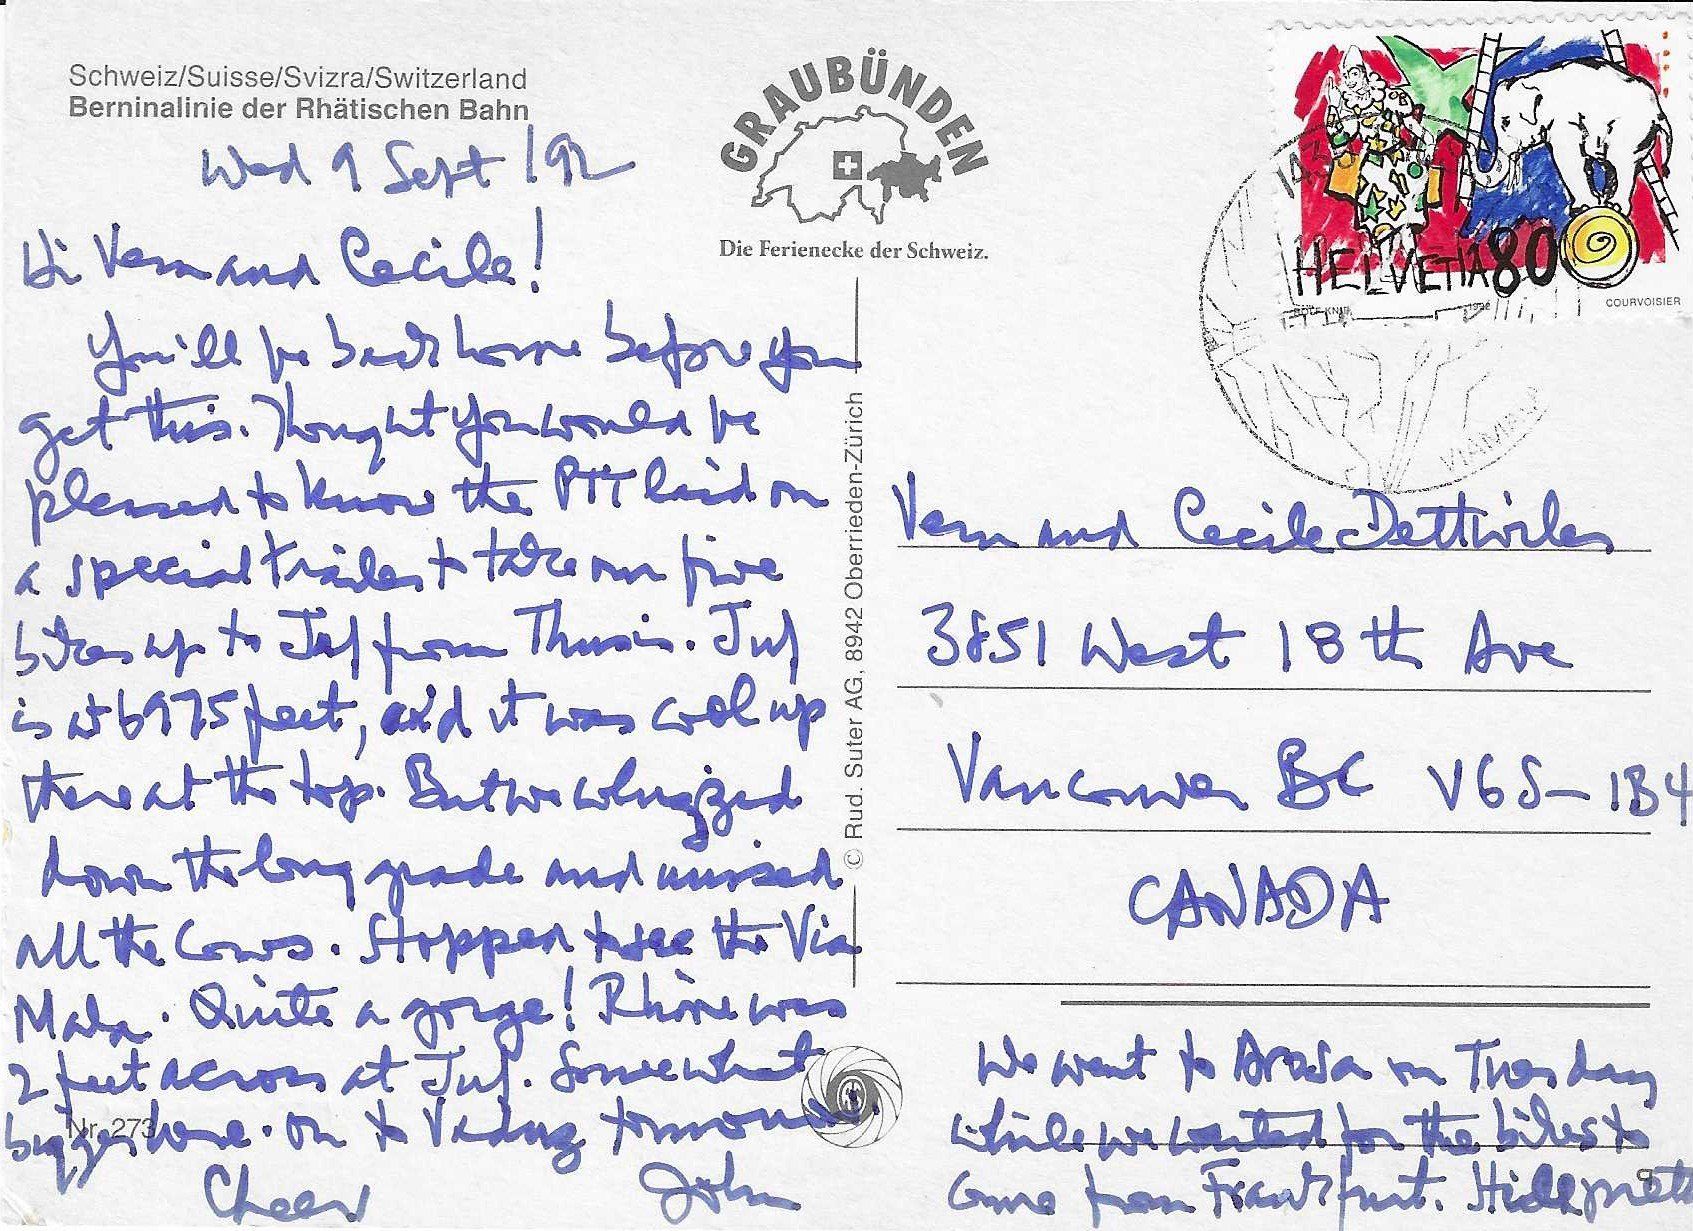 Schweiz/Suisse/Svizra/Switzerland
Berninalinie der Rhätischen Bahn
GRAUBÜNDEN
Die Ferienecke der Schweiz.
HELVETIA 80
1992
COURVOISIER
VIAMALA
Wed 9 Sept /92
Hi Vern and Cecile!
You'll be back home before you
get this. Thought you would be
pleased to know the PTT laid on
a special trailer to take our five
bikes up to Juf from Thusis. Juf
is at 6975 feet, and it was cool up
there at the top. But we whizzed
down the long grade and missed
all the cows. Stopped to see the Via
Mala. Quite a gorge! Rhine was
2 feet across at Juf. Somewhat
bigger here. On to Vaduz tomorrow.
Cheers John
Nr. 273
© Rud. Suter AG, 8942 Oberrieden-Zürich
Vern and Cecile Dettwiler
3851 West 18th Ave
Vancouver BC V6S-1B4
CANADA
We went to Arosa on Tuesday
while we waited for the bikes to
come from Frankfurt.